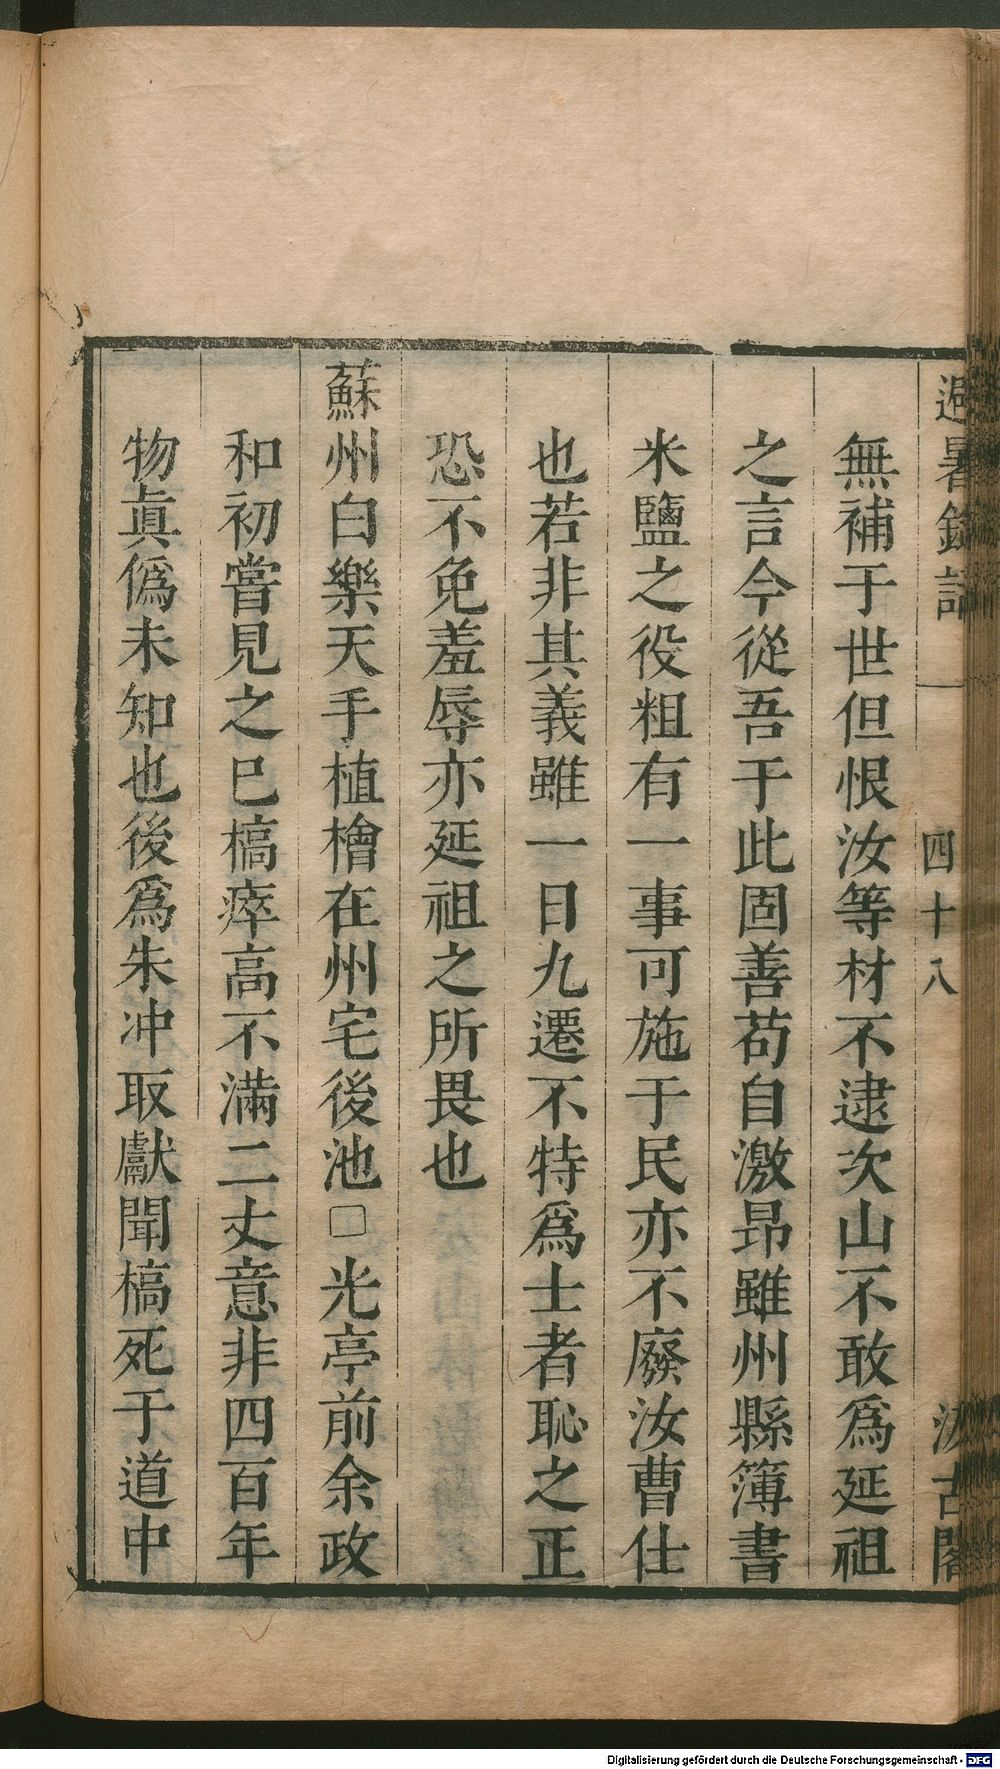 避暑錄話 四十八 汲古閣
無補于世但恨汝等材不逮次山不敢爲延祖
之言今從吾于此固善苟自激昂雖州縣簿書
米鹽之役粗有一事可施于民亦不廢汝曹仕
也若非其義雖一日九遷不特爲士者恥之正
恐不免羞辱亦延祖之所畏也
蘇州白樂天手植檜在州宅後池□光亭前余政
和初嘗見之巳槁瘁高不滿二丈意非四百年
物眞僞未知也後爲朱冲取獻聞槁死于道中
Digitalisierung gefördert durch die Deutsche Forschungsgemeinschaft - DFG